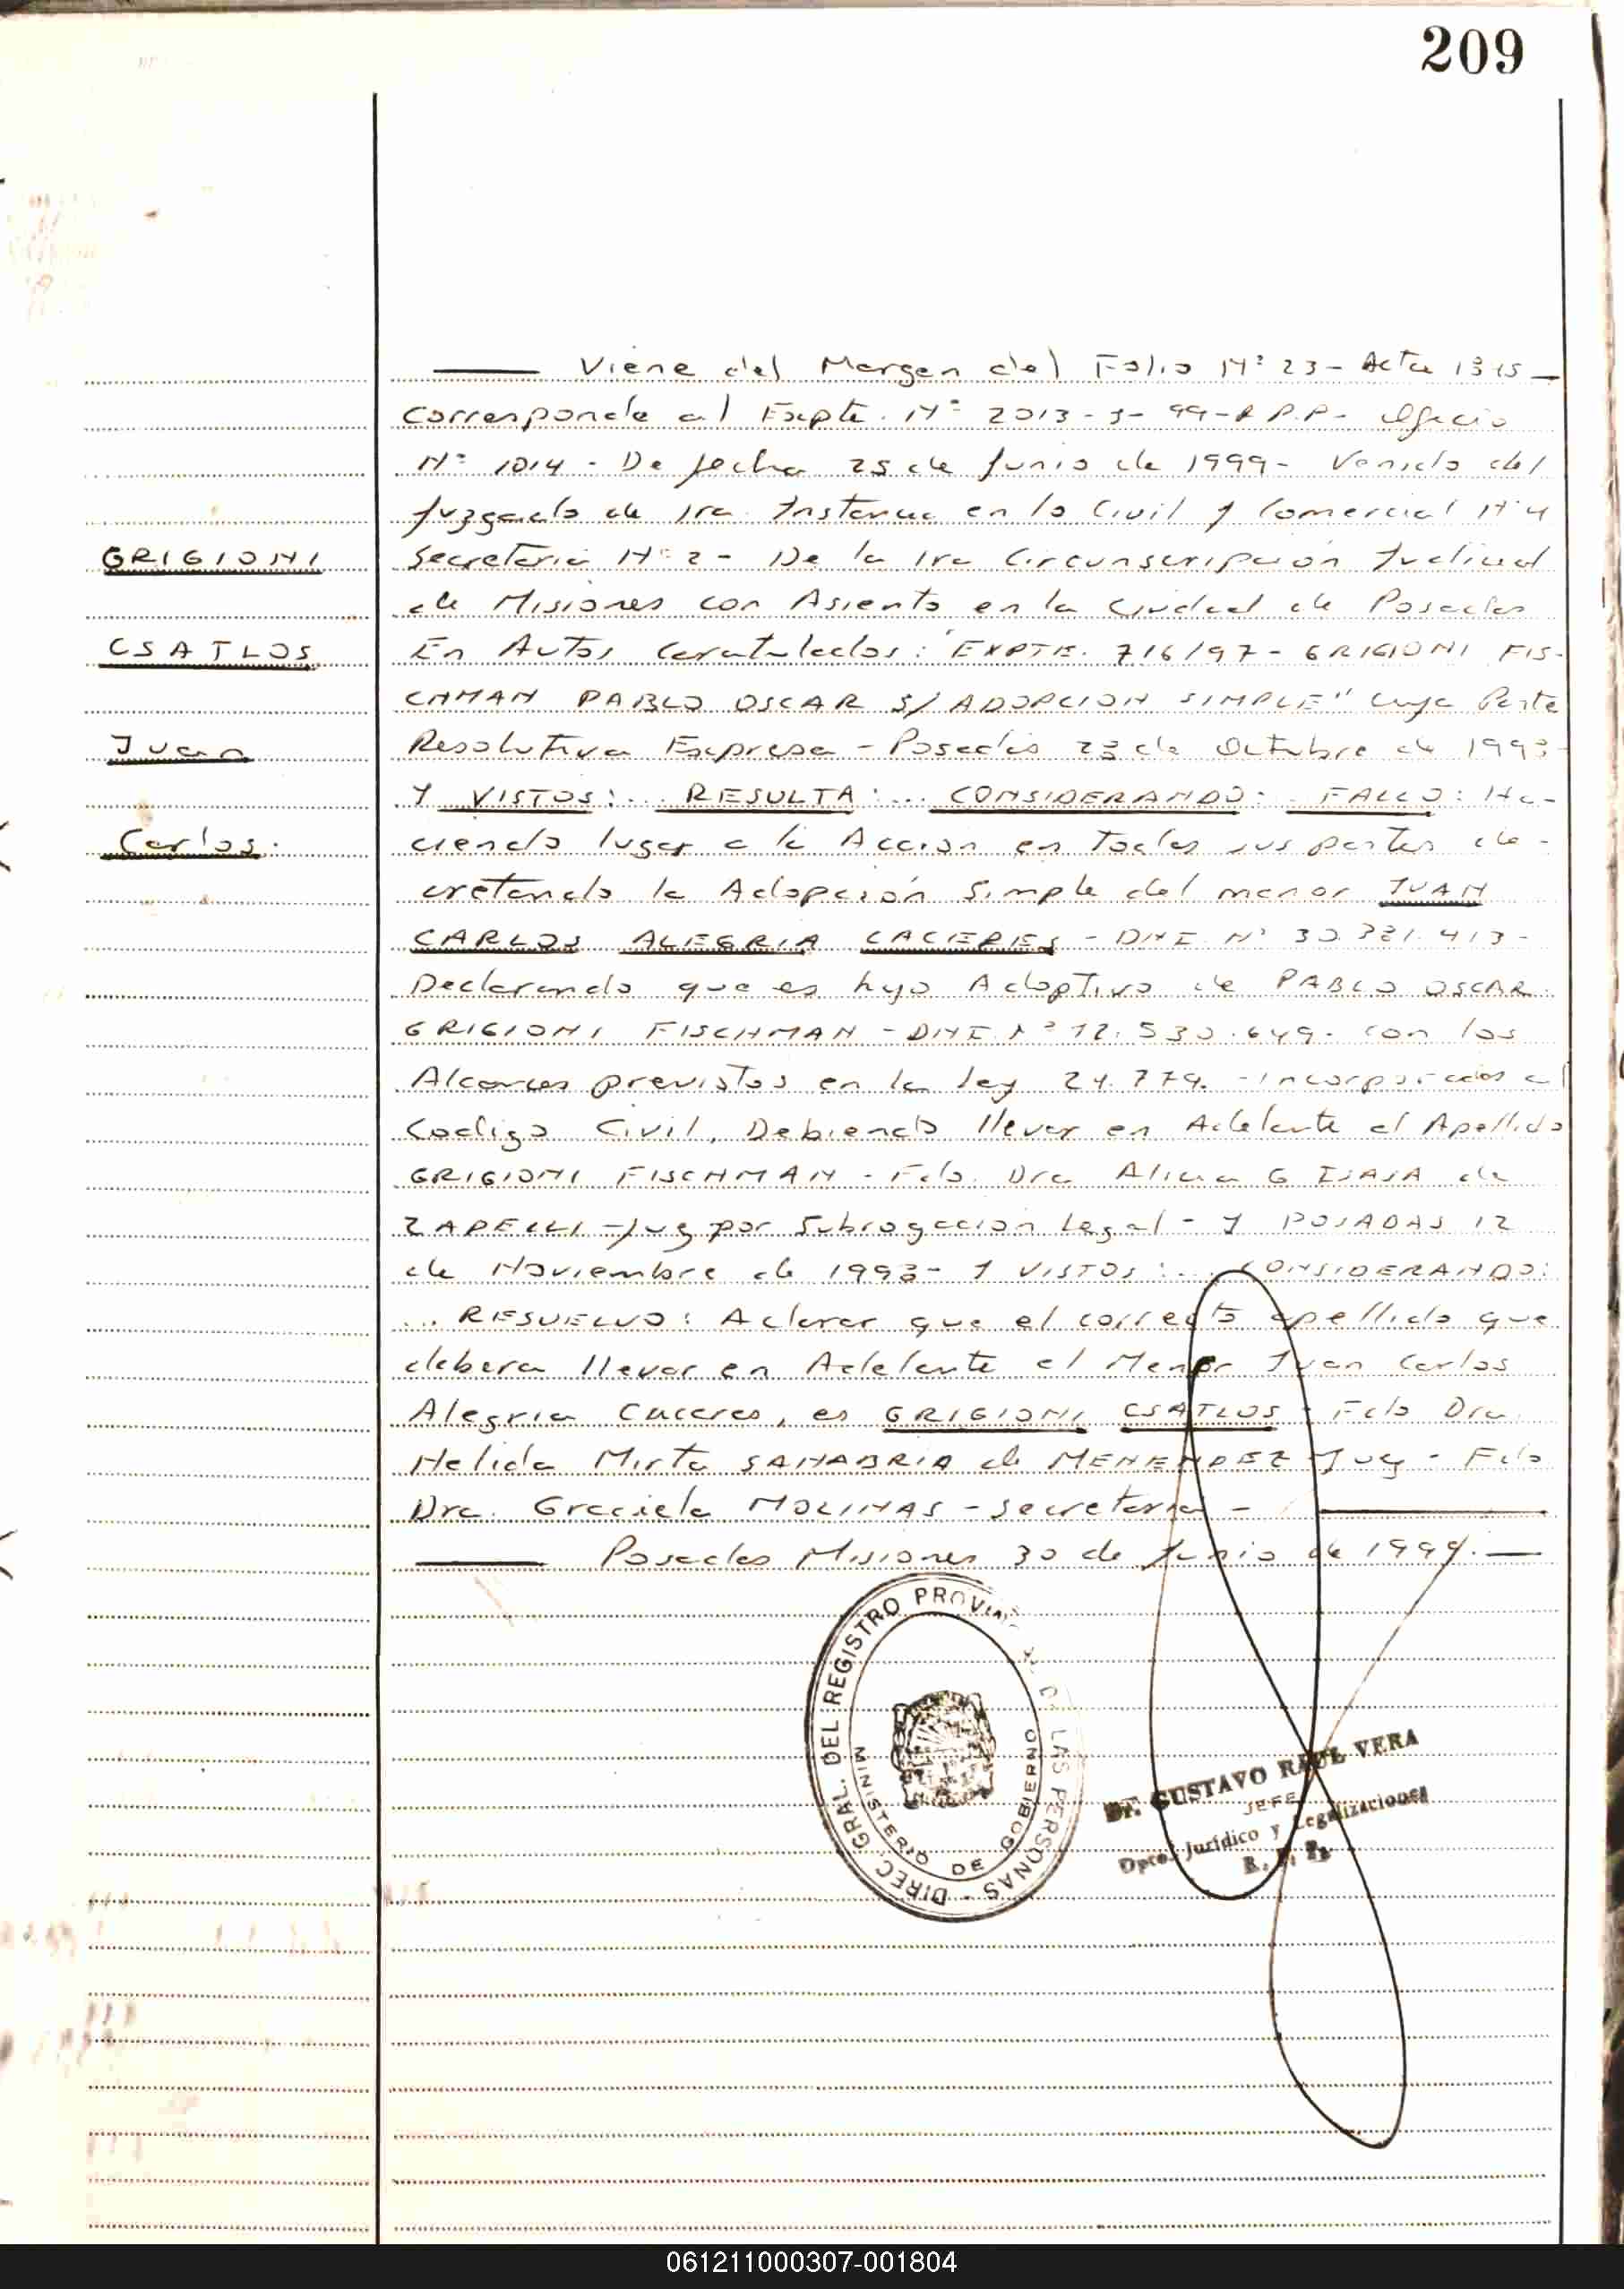 209
Viene del Margen del Folio Nº 23 - Acta 1315 -
Corresponde al Expte. Nº 2013-3-99-R.P.P- Oficio
Nº 1014 - De fecha 25 de Junio de 1999 - Venido del
Juzgado de 1ra. Instancia en lo Civil y Comercial Nº 4
GRIGIONI
Secretaria Nº 2 - De la 1ra Circunscripción Judicial
de Misiones con Asiento en la Ciudad de Posadas
CSATLOS
En Autos Caratulados: "EXPTE. 716/97 - GRIGIONI FIS-
CHMAN PABLO OSCAR S/ ADOPCION SIMPLE" Cuya Parte
Juan
Resolutiva Expresa - Posadas 23 de Octubre de 1998
Y VISTOS:... RESULTA:... CONSIDERANDO: FALLO: Ha-
Carlos.
ciendo lugar a la Acción en todas sus partes de-
cretando la Adopción Simple del menor JUAN
CARLOS ALEGRIA CACERES - DNI. Nº 30.321.413 -
Declarando que es hijo Adoptivo de PABLO OSCAR
GRIGIONI FISCHMAN - DNI. Nº 12.530.649 - con los
Alcances previstos en la ley 24.779. - incorporados al
Codigo Civil, Debiendo llevar en Adelante el Apellido
GRIGIONI FISCHMAN - Fdo. Dra Alicia G ISASA de
ZAPELLI - Juez por Subrogacion Legal - Y POSADAS 12
de Noviembre de 1998 - Y VISTOS:... CONSIDERANDO:
... RESUELVO: Aclarar que el correcto apellido que
debera llevar en Adelante el Menor Juan Carlos
Alegria Caceres, es GRIGIONI CSATLOS - Fdo Dra.
Helida Mirta SANABRIA de MENENDEZ Juez - Fdo
Dra. Graciela MOLINAS - Secretaria -
Posadas Misiones 30 de Junio de 1999. -
DIREC. GRAL. DEL REGISTRO PROVINC DE LAS PERSONAS -
MINISTERIO DE GOBIERNO
Dr. GUSTAVO RAUL VERA
JEFE
Dpto. Jurídico y Legalizaciones
R. P. P.
061211000307-001804